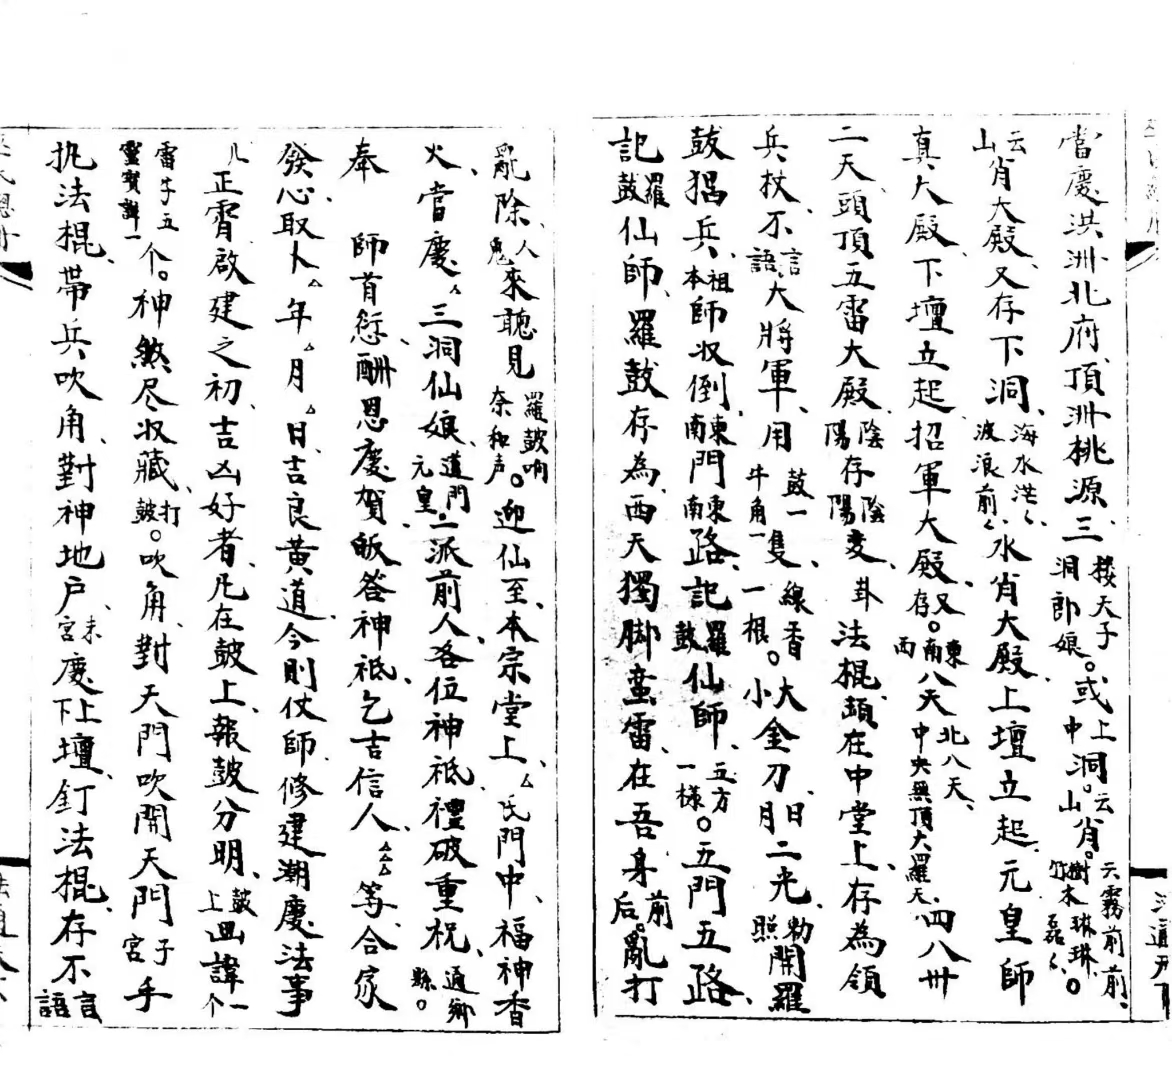 當慶洪洲北府頂洲桃源三楼天子洞郎娘。或上中洞。云山肖。云霧前前、樹木琳琳、竹磊〻。
云山肖大殿、又存下洞、海水茫〻、波浪前〻、水肖大殿上壇立起元皇師
真大殿、下壇立起招軍大殿、又存。東南西八天北八天、中央無頂大羅天、四八卅
二天頭頂五雷大殿、陰陽存陰陽变卦法棍頭在中堂上、存為領
兵杖不言語大將軍、用鼓一隻、牛角一、線香一根。大小金刀、日月二光、勅照開羅
鼓猖兵、祖本師收倒、東南門東南路、記羅鼓仙師、五方一樣。五門五路、
記羅鼓仙師、羅鼓存為西天獨脚蛮雷、在吾身前后。亂打
亂除、人鬼來聽見羅鼓响奈和声。迎仙至、本宗堂上、△氏門中、福神香
火、當慶、△三洞仙娘、道門元皇二派前人、各位神祇、禮破重祝、通鄉縣。
奉　師首愆、酬恩慶賀皈答神祇、乞吉信人、△△△等合家
發心取卜、△年△月△日、吉良黃道、今則仗師修建潮慶法事
正霄啟建之初、吉凶好者、凡在鼓上、報鼓分明、鼓上画諱一个
雷字五个。靈寶諱一神煞尽收藏、打鼓。吹角、對天門吹開天門子宮手
执法棍、帶兵吹角、對神地户、未宮慶上下壇、釘法棍、存不言語